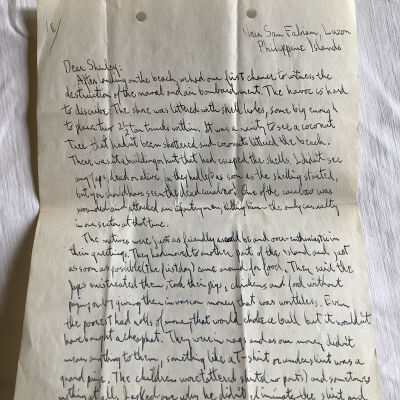 18/
Near San Fabian, Luzon
Philippine Islands
Dear Shirley:
After landing on the beach we had our first chance to witness the
destruction of the naval and air bombardment. The havoc is hard
to describe. The shore was littered with shell holes, some big enough
to place two 2½ ton trucks within. It was a rarity to see a coconut
tree that hadn't been shattered and coconuts littered the beach.
There wasn't a building or hut that had escaped the shells. I didn't see
any Japs, dead or alive for they pulled as soon as the shelling started,
but you should have seen the dead carabao. One of the carabao was
wounded and attacked an infantry man, killing him - the only casualty
in our sector at that time.
The natives were just as friendly as could be and over-enthusiastic in
their greeting. They had moved to another part of the island and just
as soon as possible (the first day) came around for food. They said the
Japs mistreated them; took their pigs, chickens and food without
paying only giving them invasion money that was worthless. Even
the poorest had rolls of money that would choke a bull but it wouldn't
have bought a cheap hat. They were in rags and as our money didn't
mean anything to them, something like a t-shirt or undershirt was a
grand prize. The children wore tattered shirts (no pants) and sometimes
nothing at all. I asked one why he didn't eliminate the shirt and